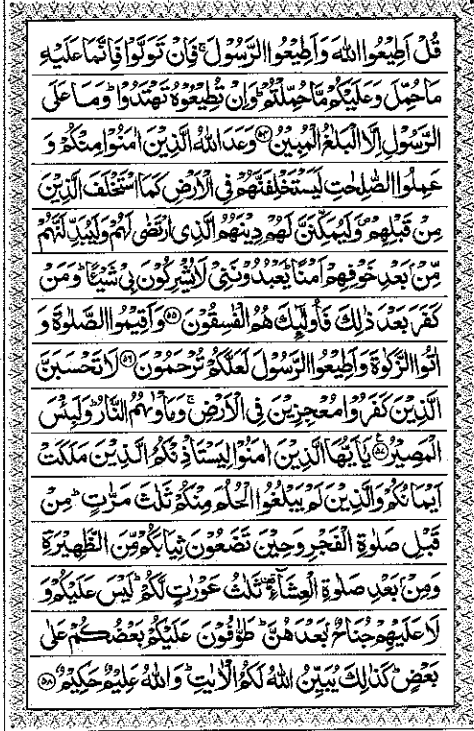 قُلْ اَطِيْعُوا اللّٰهَ وَاَطِيْعُوا الرَّسُوْلَ ۚ فَاِنْ تَوَلَّوْا فَاِنَّمَا عَلَيْهِ
مَا حُمِّلَ وَعَلَيْكُمْ مَّا حُمِّلْتُمْ ؕ وَاِنْ تُطِيْعُوْهُ تَهْتَدُوْا ؕ وَمَا عَلَى
الرَّسُوْلِ اِلَّا الْبَلٰغُ الْمُبِيْنُ ﴿۵۴﴾ وَعَدَ اللّٰهُ الَّذِيْنَ اٰمَنُوْا مِنْكُمْ وَ
عَمِلُوا الصّٰلِحٰتِ لَيَسْتَخْلِفَنَّهُمْ فِي الْاَرْضِ كَمَا اسْتَخْلَفَ الَّذِيْنَ
مِنْ قَبْلِهِمْ ۪ وَلَيُمَكِّنَنَّ لَهُمْ دِيْنَهُمُ الَّذِي ارْتَضٰى لَهُمْ وَلَيُبَدِّلَنَّهُمْ
مِّنْۢ بَعْدِ خَوْفِهِمْ اَمْنًا ؕ يَعْبُدُوْنَنِيْ لَا يُشْرِكُوْنَ بِيْ شَيْـًٔا ؕ وَمَنْ
كَفَرَ بَعْدَ ذٰلِكَ فَاُولٰٓئِكَ هُمُ الْفٰسِقُوْنَ ﴿۵۵﴾ وَاَقِيْمُوا الصَّلٰوةَ وَ
اٰتُوا الزَّكٰوةَ وَاَطِيْعُوا الرَّسُوْلَ لَعَلَّكُمْ تُرْحَمُوْنَ ﴿۵۶﴾ لَا تَحْسَبَنَّ
الَّذِيْنَ كَفَرُوْا مُعْجِزِيْنَ فِي الْاَرْضِ ۚ وَمَاْوٰىهُمُ النَّارُ ؕ وَلَبِئْسَ
الْمَصِيْرُ ﴿۵۷﴾ يٰٓاَيُّهَا الَّذِيْنَ اٰمَنُوْا لِيَسْتَاْذِنْكُمُ الَّذِيْنَ مَلَكَتْ
اَيْمَانُكُمْ وَالَّذِيْنَ لَمْ يَبْلُغُوا الْحُلُمَ مِنْكُمْ ثَلٰثَ مَرّٰتٍ ؕ مِنْ
قَبْلِ صَلٰوةِ الْفَجْرِ وَحِيْنَ تَضَعُوْنَ ثِيَابَكُمْ مِّنَ الظَّهِيْرَةِ
وَمِنْۢ بَعْدِ صَلٰوةِ الْعِشَآءِ ؕ ثَلٰثُ عَوْرٰتٍ لَّكُمْ ؕ لَيْسَ عَلَيْكُمْ وَ
لَا عَلَيْهِمْ جُنَاحٌۢ بَعْدَهُنَّ ؕ طَوّٰفُوْنَ عَلَيْكُمْ بَعْضُكُمْ عَلٰى
بَعْضٍ ؕ كَذٰلِكَ يُبَيِّنُ اللّٰهُ لَكُمُ الْاٰيٰتِ ؕ وَاللّٰهُ عَلِيْمٌ حَكِيْمٌ ﴿۵۸﴾